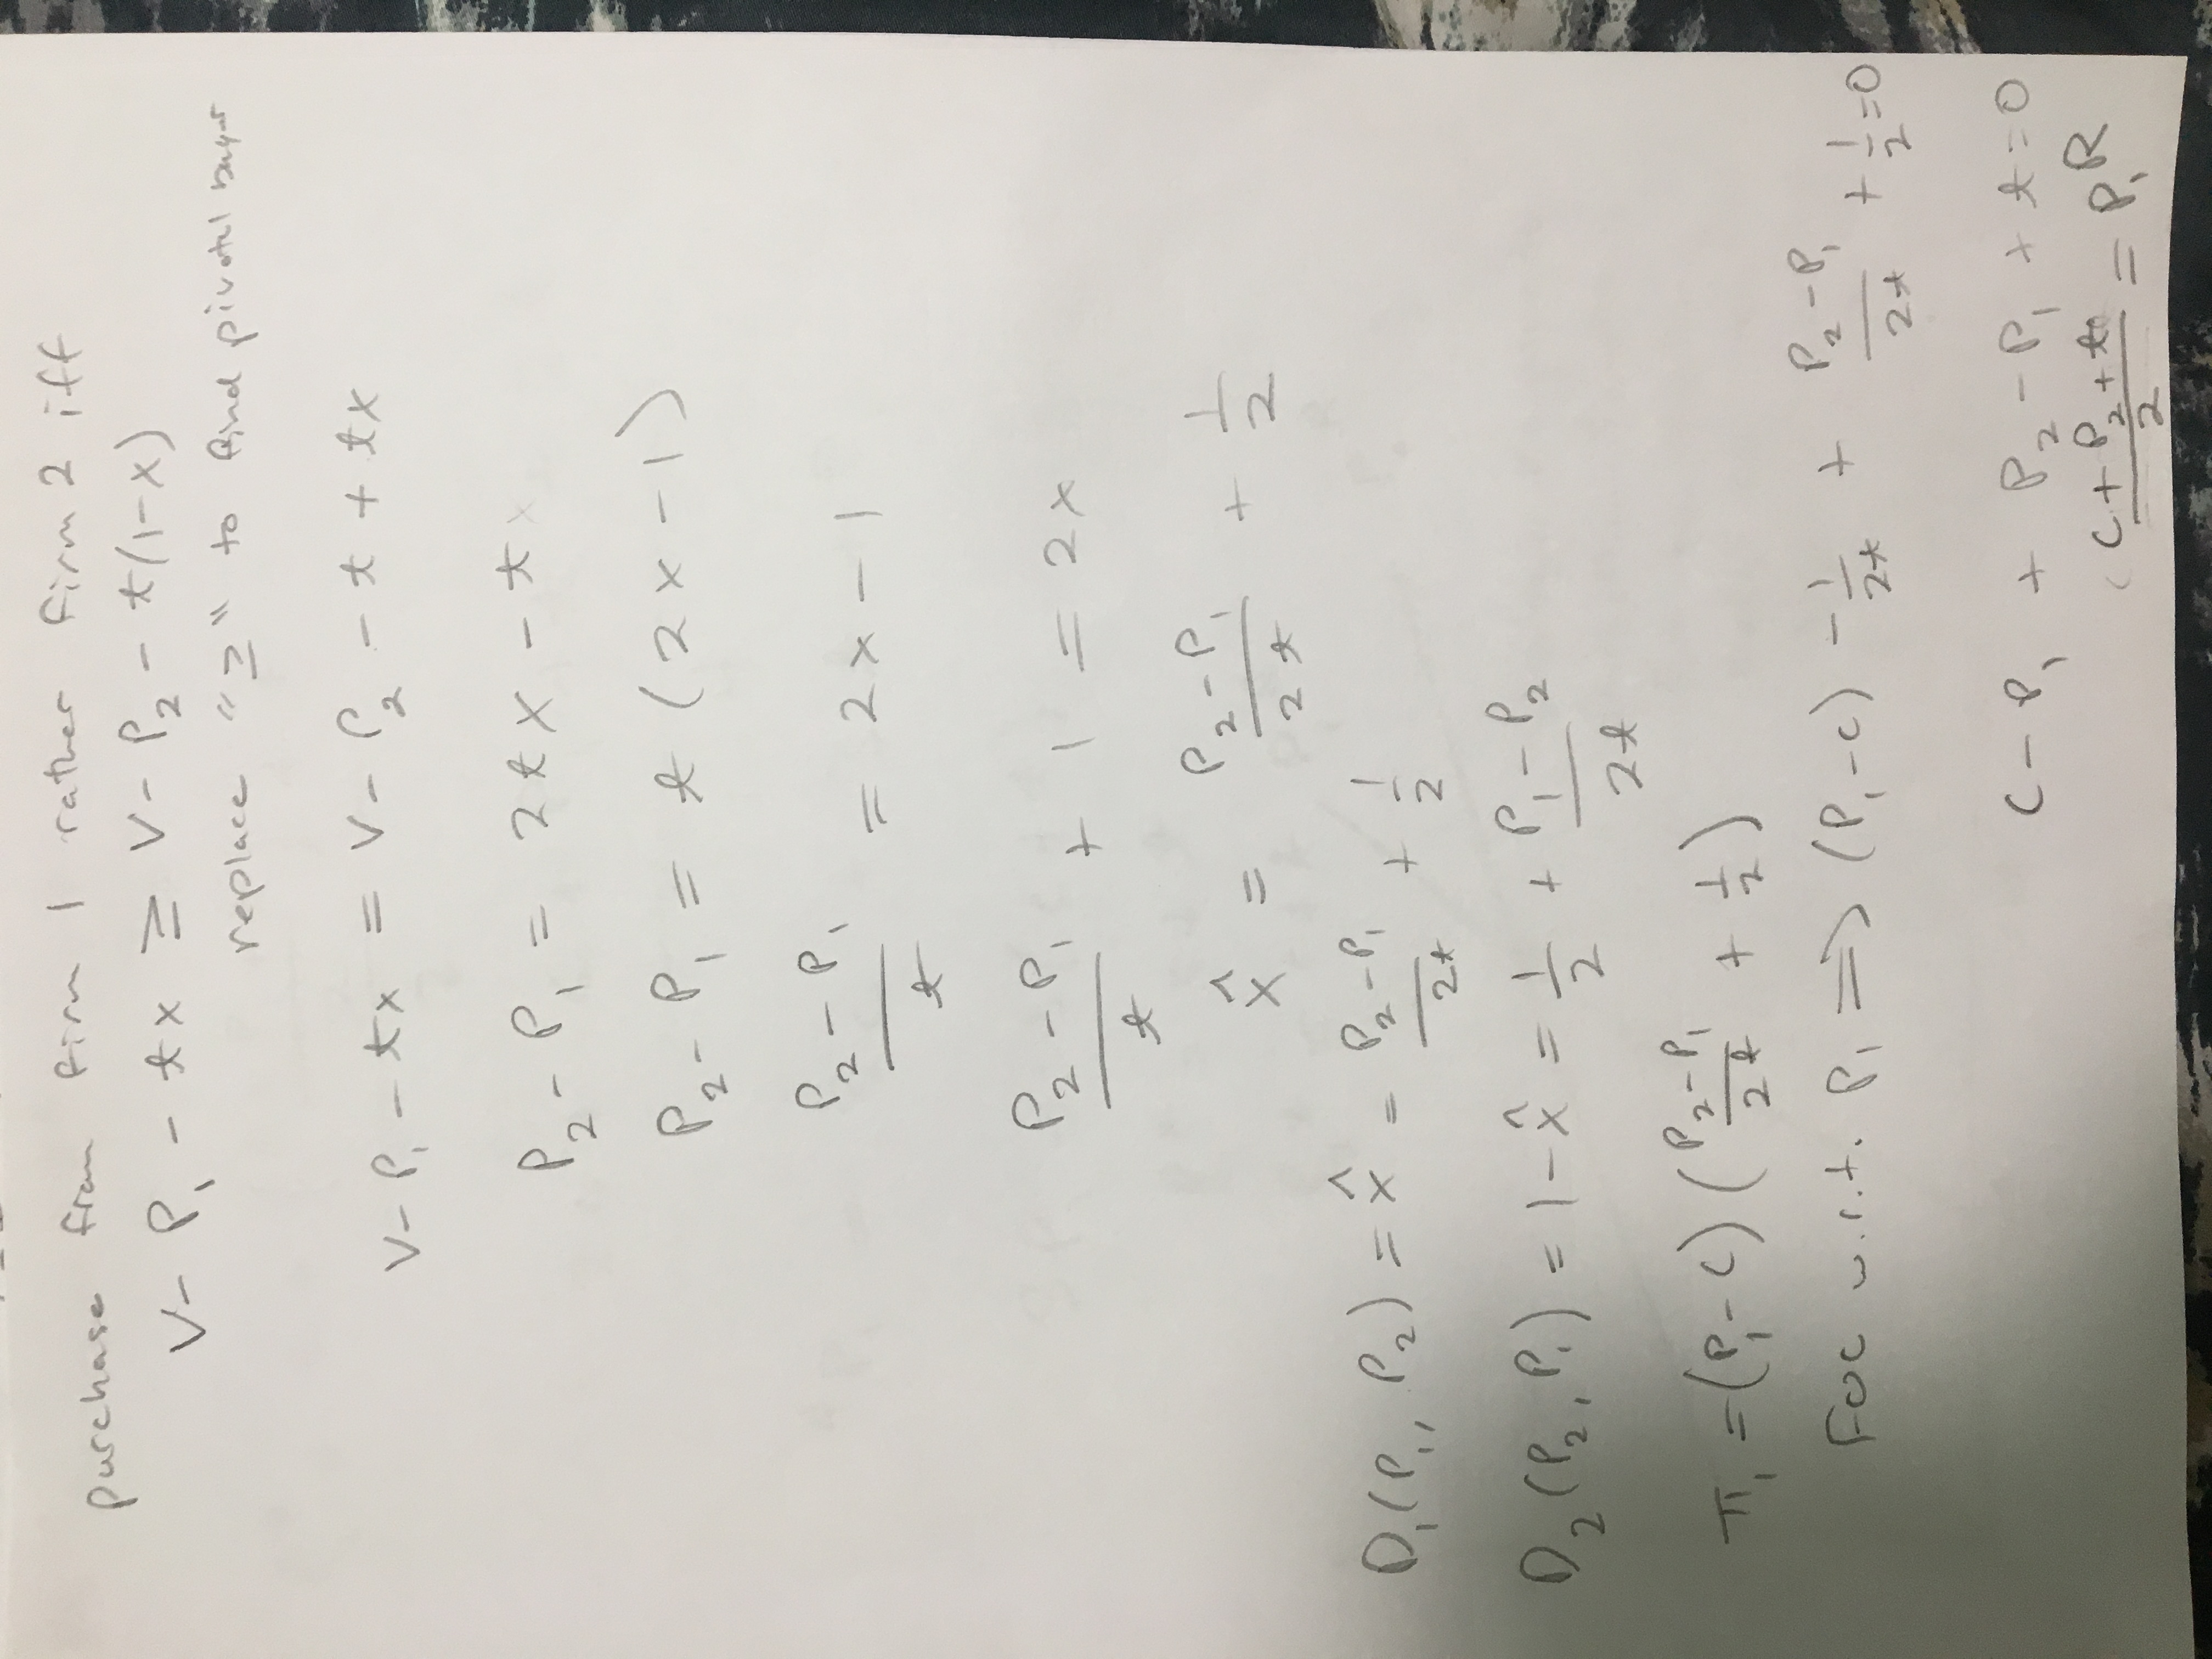 purchase from firm 1 rather firm 2 iff
V - P₁ - tx ≥ V - P₂ - t(1-x)
replace "≥" to find pivotal buyer
V - P₁ - tx = V - P₂ - t + tx
P₂ - P₁ = 2tx - t
P₂ - P₁ = t (2x - 1)
(P₂ - P₁)/t = 2x - 1
(P₂ - P₁)/t + 1 = 2x
x̂ = (P₂ - P₁)/2t + 1/2
D₁(P₁, P₂) = x̂ = (P₂ - P₁)/2t + 1/2
D₂(P₂, P₁) = 1 - x̂ = 1/2 + (P₁ - P₂)/2t
π₁ = (P₁ - C) ((P₂ - P₁)/2t + 1/2)
FOC w.r.t. P₁ ⟹ (P₁ - c) - 1/2t + (P₂ - P₁)/2t + 1/2 = 0
C - P₁ + P₂ - P₁ + t = 0
(C + P₂ + t)/2 = P₁ᴿ